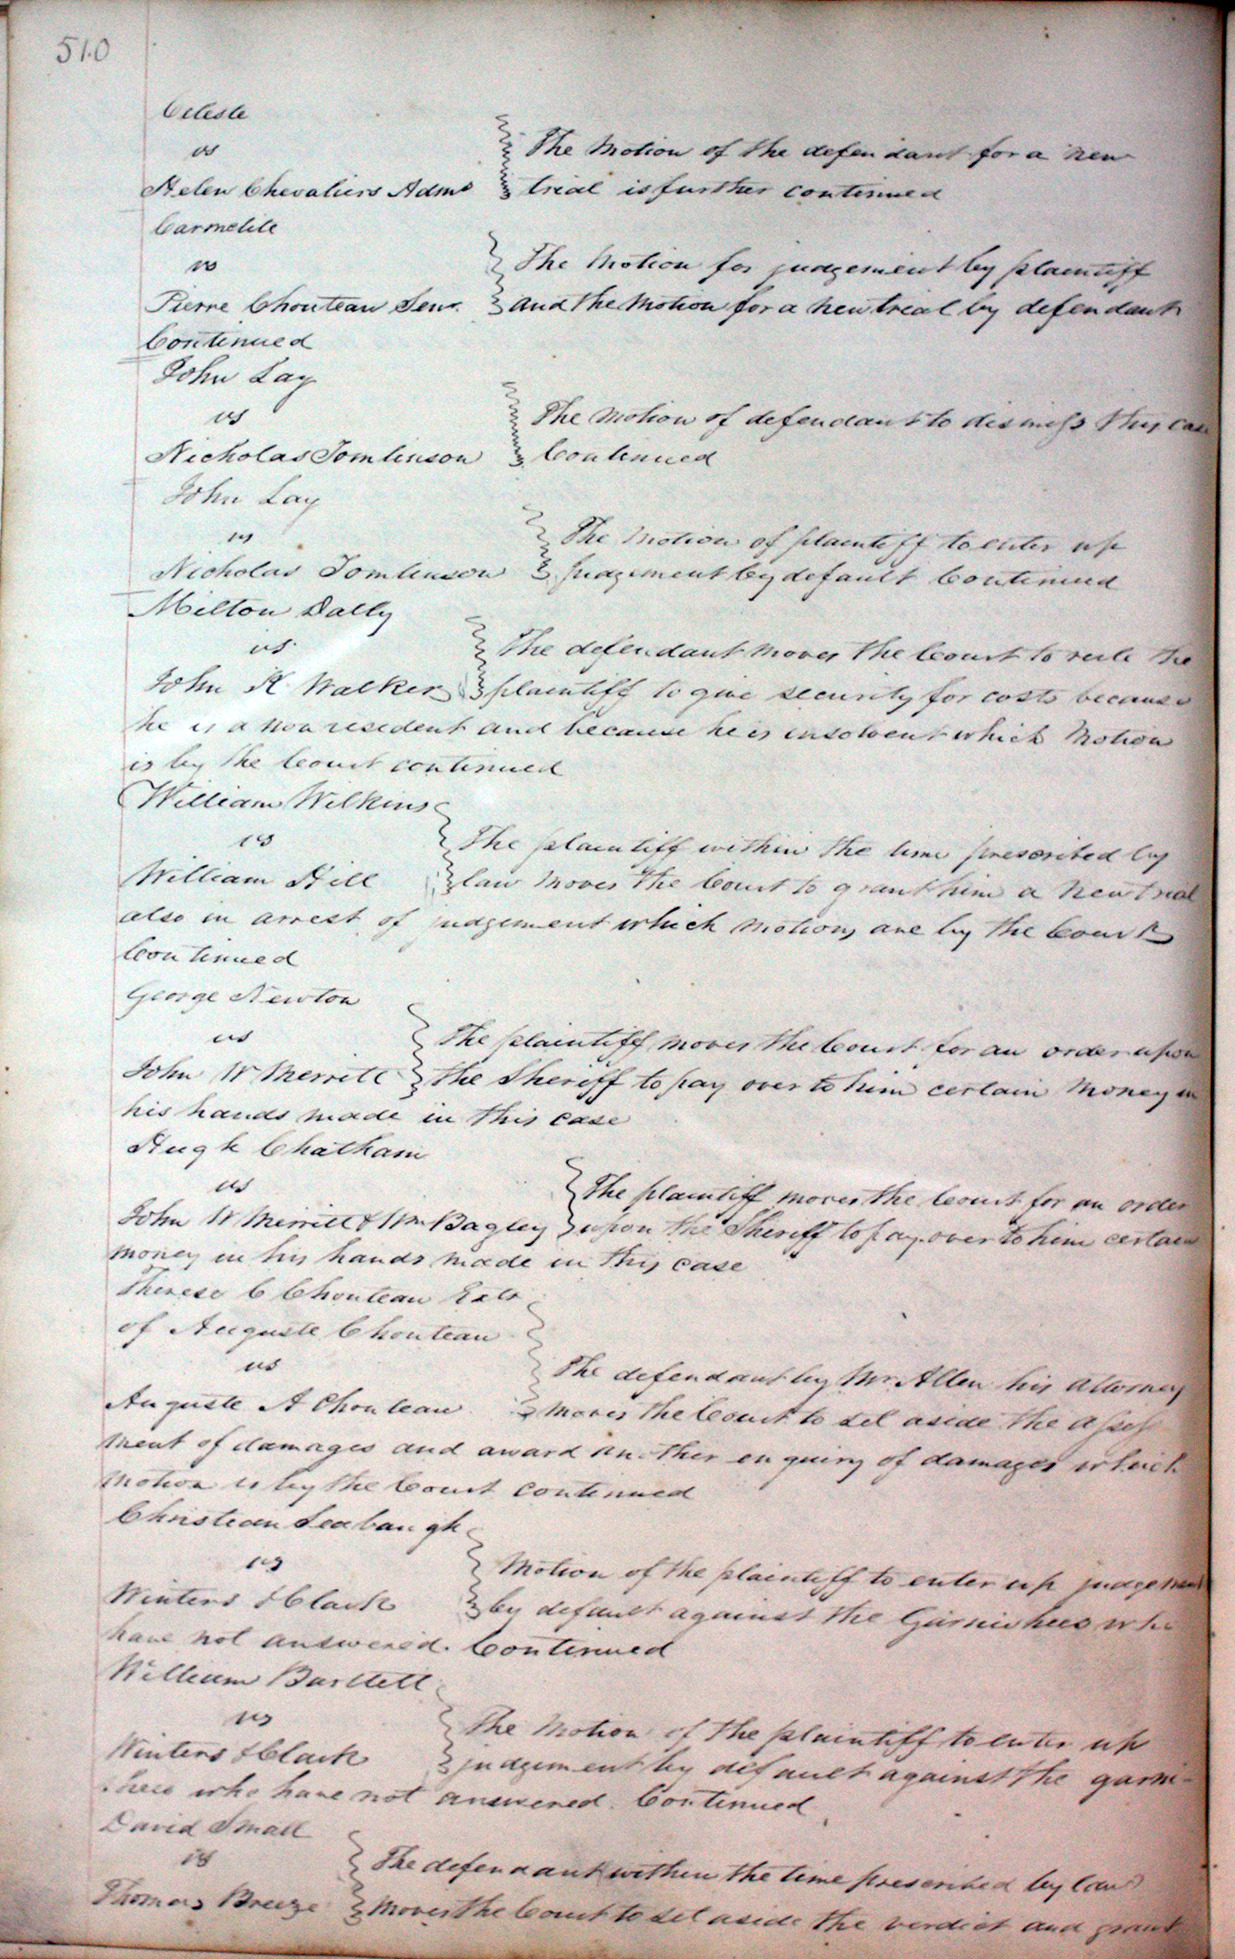 510
Celeste
vs
The Motion of the defendant for a new
Helen Chevaliers Admr trial is further continued
Carmelite
vs
The Motion for judgement by plaintiff
Pierre Chouteau Senr. and the Motion for a new trial by defendant
Continued
John Lay
vs
The Motion of defendant to dismiss this case
Nicholas Tomlinson Continued
John Lay
vs
The Motion of plaintiff to enter up
Nicholas Tomlinson judgement by default Continued
Milton Dally
vs
The defendant moves the Court to rule the
John K Walker plaintiff to give security for costs because
he is a non resident and because he is insolvent which Motion
is by the Court continued
William Wilkins
vs
The plaintiff within the time prescribed by
William Hill law moves the Court to grant him a New trial
also in arrest of judgement which motions are by the Court
Continued
George Newton
vs
The plaintiff moves the Court for an order upon
John W Merritt the Sheriff to pay over to him certain Money in
his hands made in this case
Hugh Chatham
vs
The plaintiff moves the Court for an order
John W Merritt & Wm Bagley upon the Sheriff to pay over to him certain
money in his hands made in this case
Therese C Chouteau Extr
of Auguste Chouteau
vs
The defendant by Mr. Allen his Attorney
Auguste A Chouteau moves the Court to set aside the assess
ment of damages and award another enquiry of damages which
Motion is by the Court continued
Christian Seabaugh
vs
Motion of the plaintiff to enter up judgement
Winters & Clark by default against the Garnishees who
have not answered. Continued
William Bartlett
vs
The Motion of the plaintiff to enter up
Winters & Clark judgement by default against the garni-
shees who have not answered. Continued
David Small
vs
The defendant within the time prescribed by law
Thomas Breeze moves the Court to set aside the verdict and grant